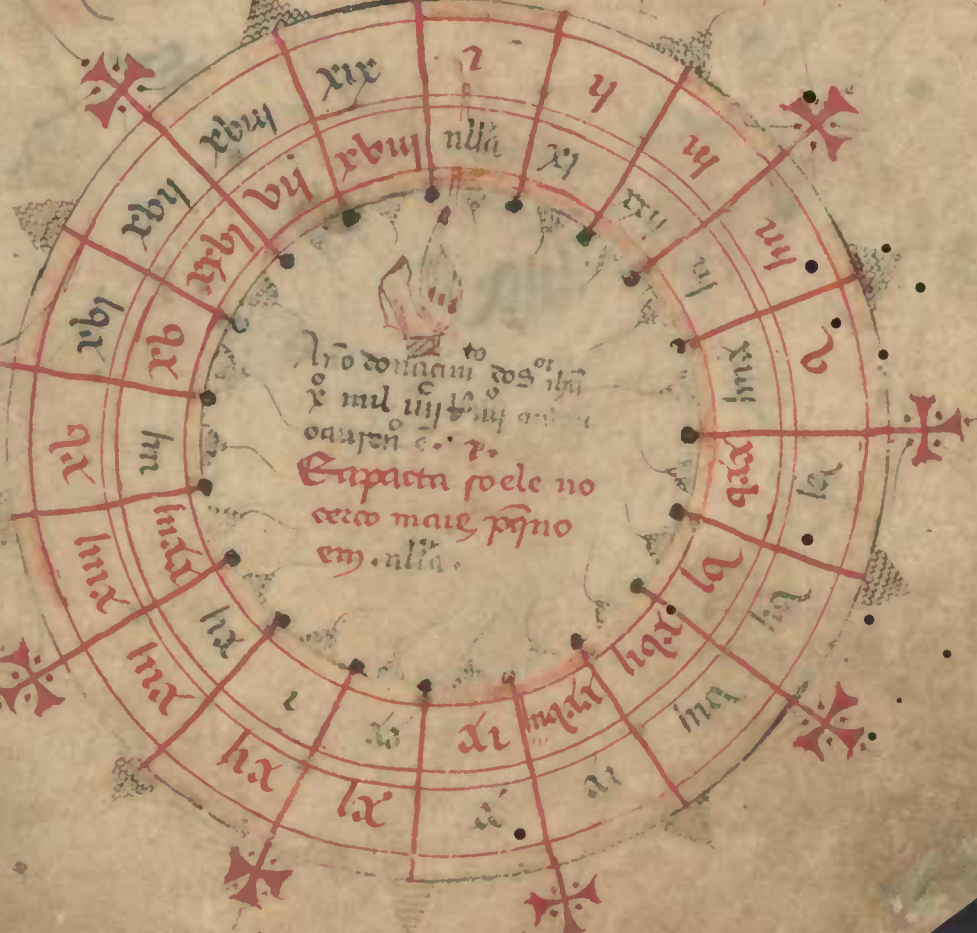 i
ij
iij
iiij
v
vi
vij
viij
ix
x
xi
xij
xiij
xiiij
xv
xvi
xvij
xviij
xix
nlla
xi
xxij
iij
xiiij
xxv
vi
xvij
xxviij
ix
xx
i
xij
xxiij
iiij
xv
xxvi
vij
xviij
do nacimto do sor ihu
xo mil
Eapacta soele no
cerco mais pq̃no
em . nlla .